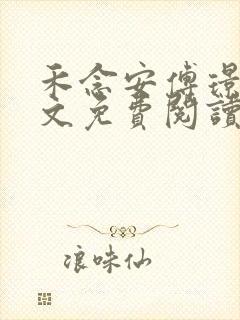 禾念安傅璟
文免費閱讀
浪味仙